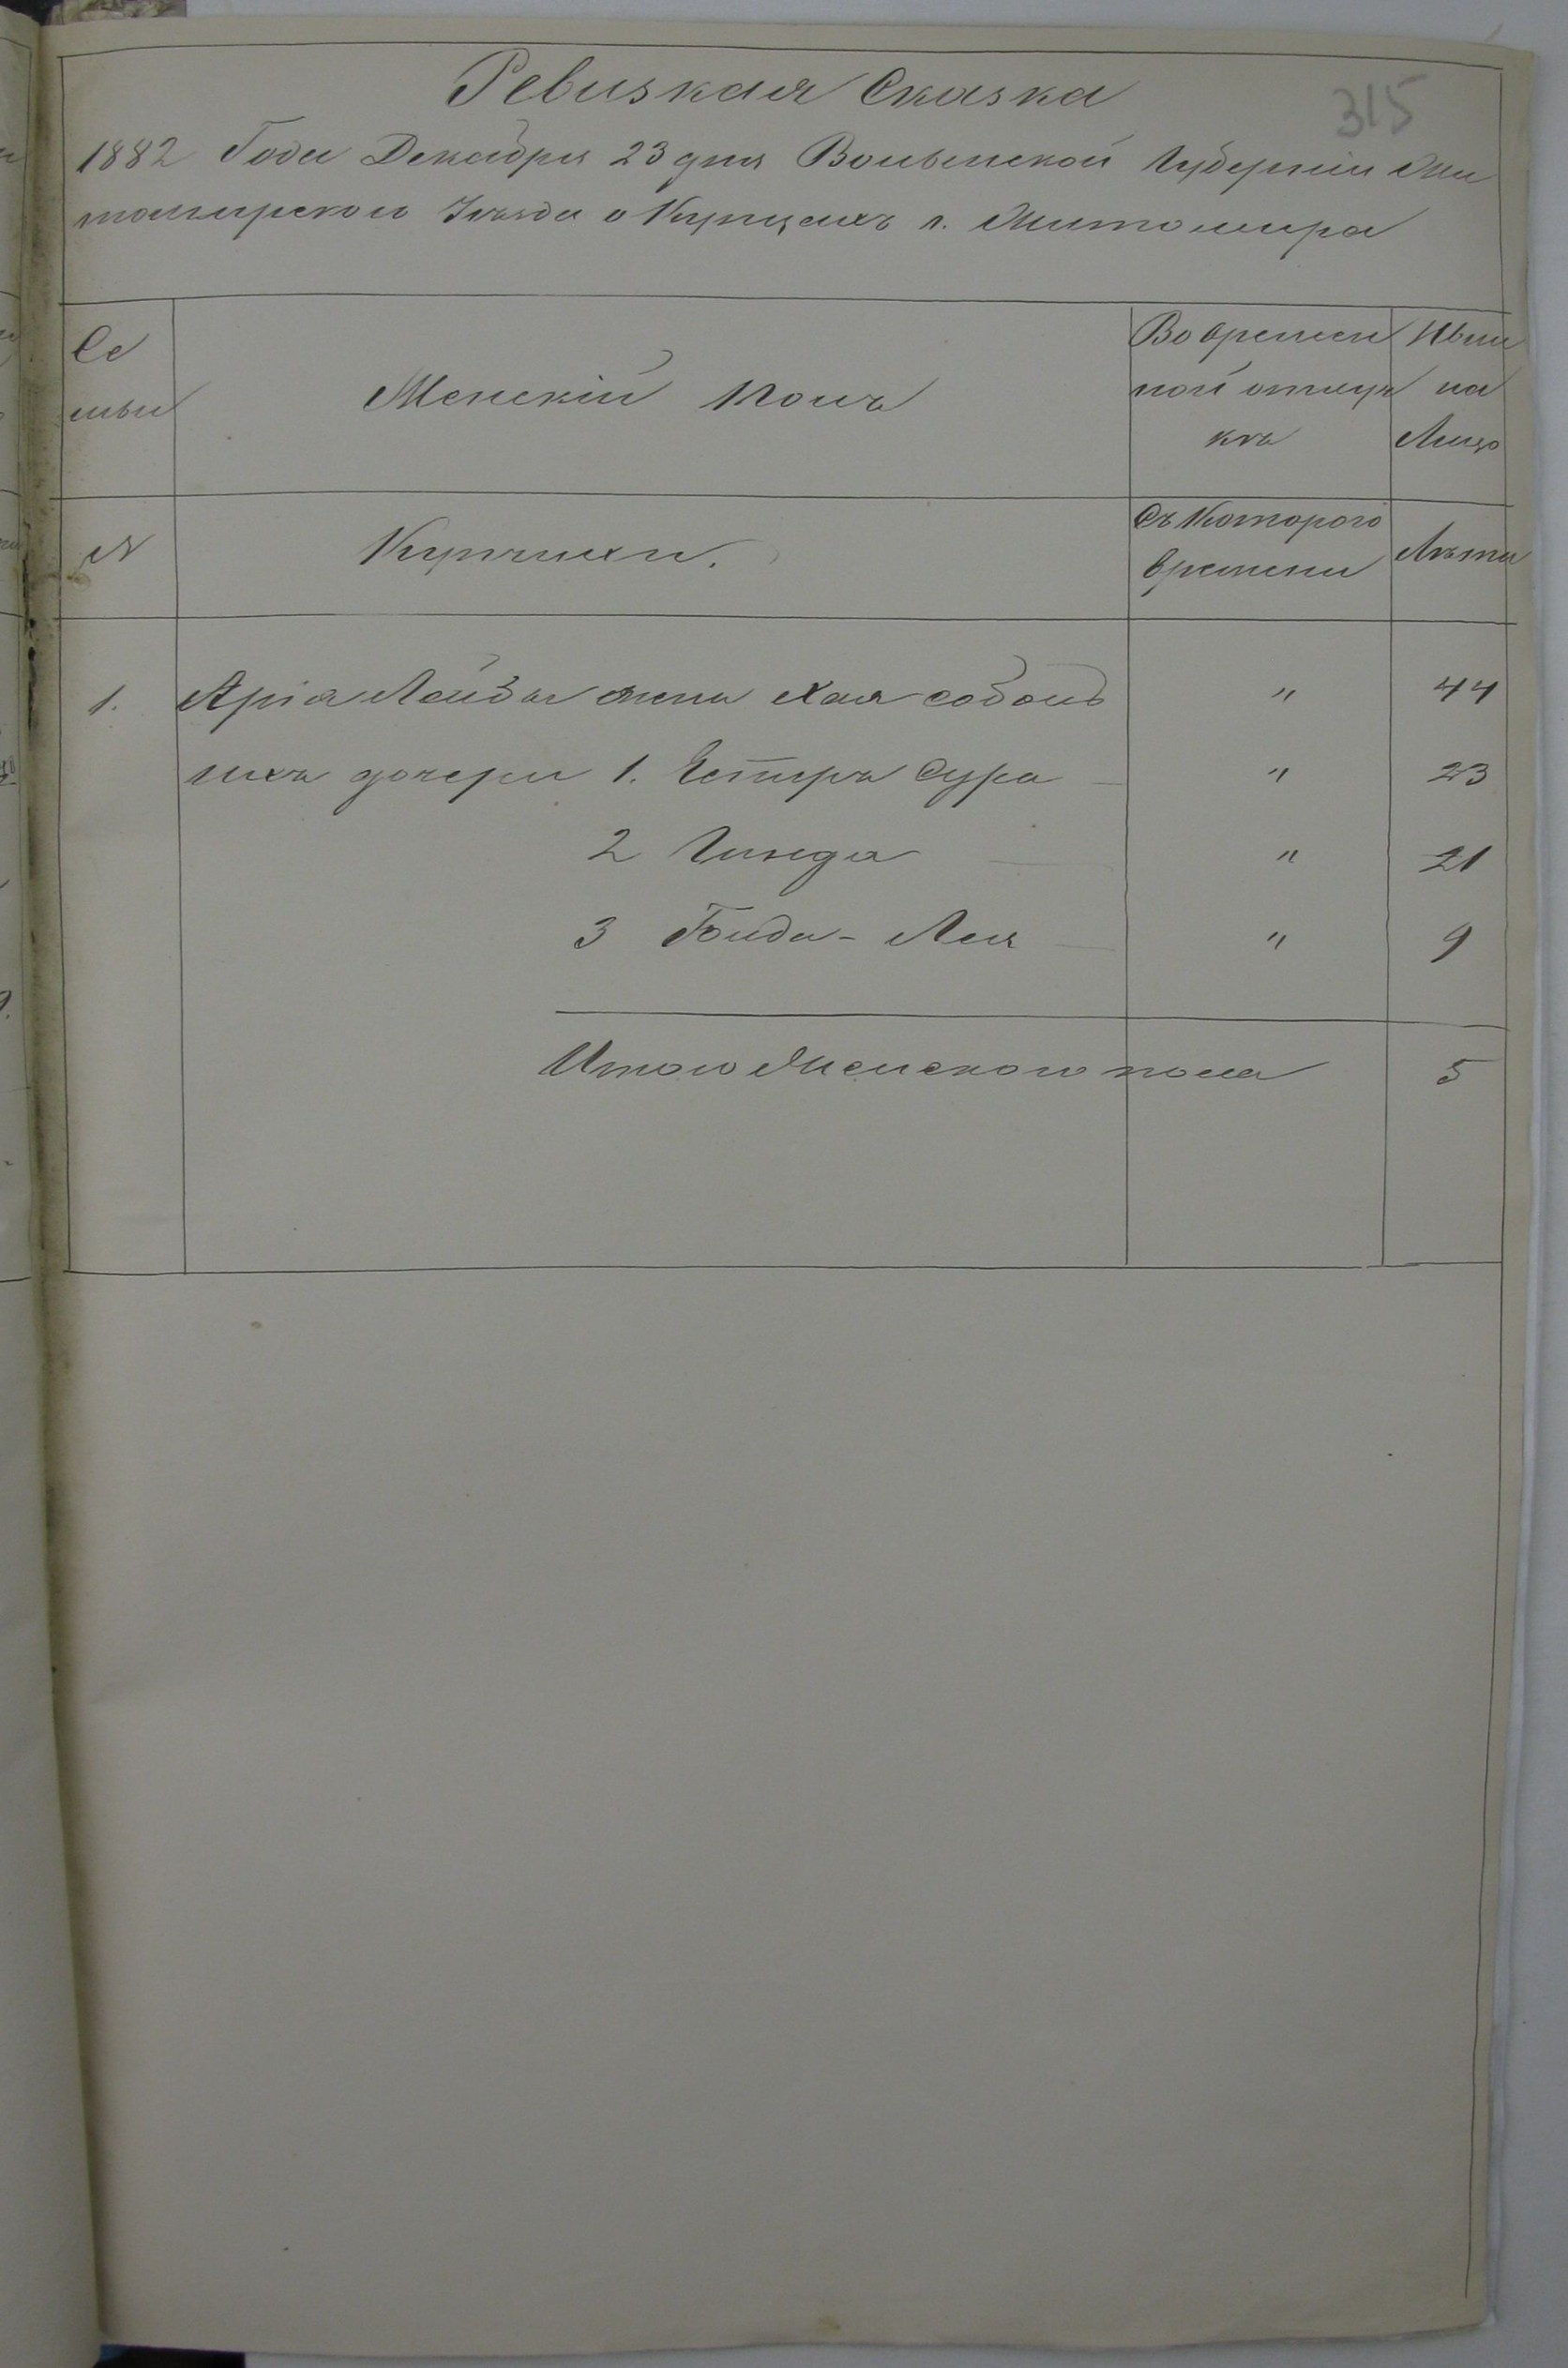 315
Ревизкая Сказка
1882 Года Декабря 23 дня Волынской Губерніи Жи
томирского Уезда о Купцахъ г. Житомира
Се
мьи
Женскій Полъ
Во времен
ной отлуч
кѣ
Нынѣ
на
Лицо
№
Купчихи.
Съ Которого
времени
Лѣта
1. Арія Лейбы жена Хая собою " 44
ихъ дочери 1. Естеръ Сура " 23
2 Гинда " 21
3 Лея " 9
Итого Женского пола 5